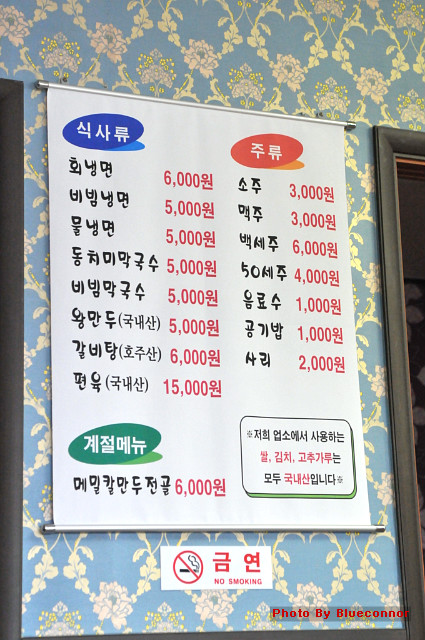 식사류
회냉면 6,000원
비빔냉면 5,000원
물냉면 5,000원
동치미막국수 5,000원
비빔막국수 5,000원
왕만두(국내산) 5,000원
갈비탕(호주산) 6,000원
편육(국내산) 15,000원
계절메뉴
메밀칼만두전골 6,000원
주류
소주 3,000원
맥주 3,000원
백세주 6,000원
50세주 4,000원
음료수 1,000원
공기밥 1,000원
사리 2,000원
※저희 업소에서 사용하는
쌀, 김치, 고추가루는
모두 국내산입니다※
금연
NO SMOKING
Photo By Blueconnor